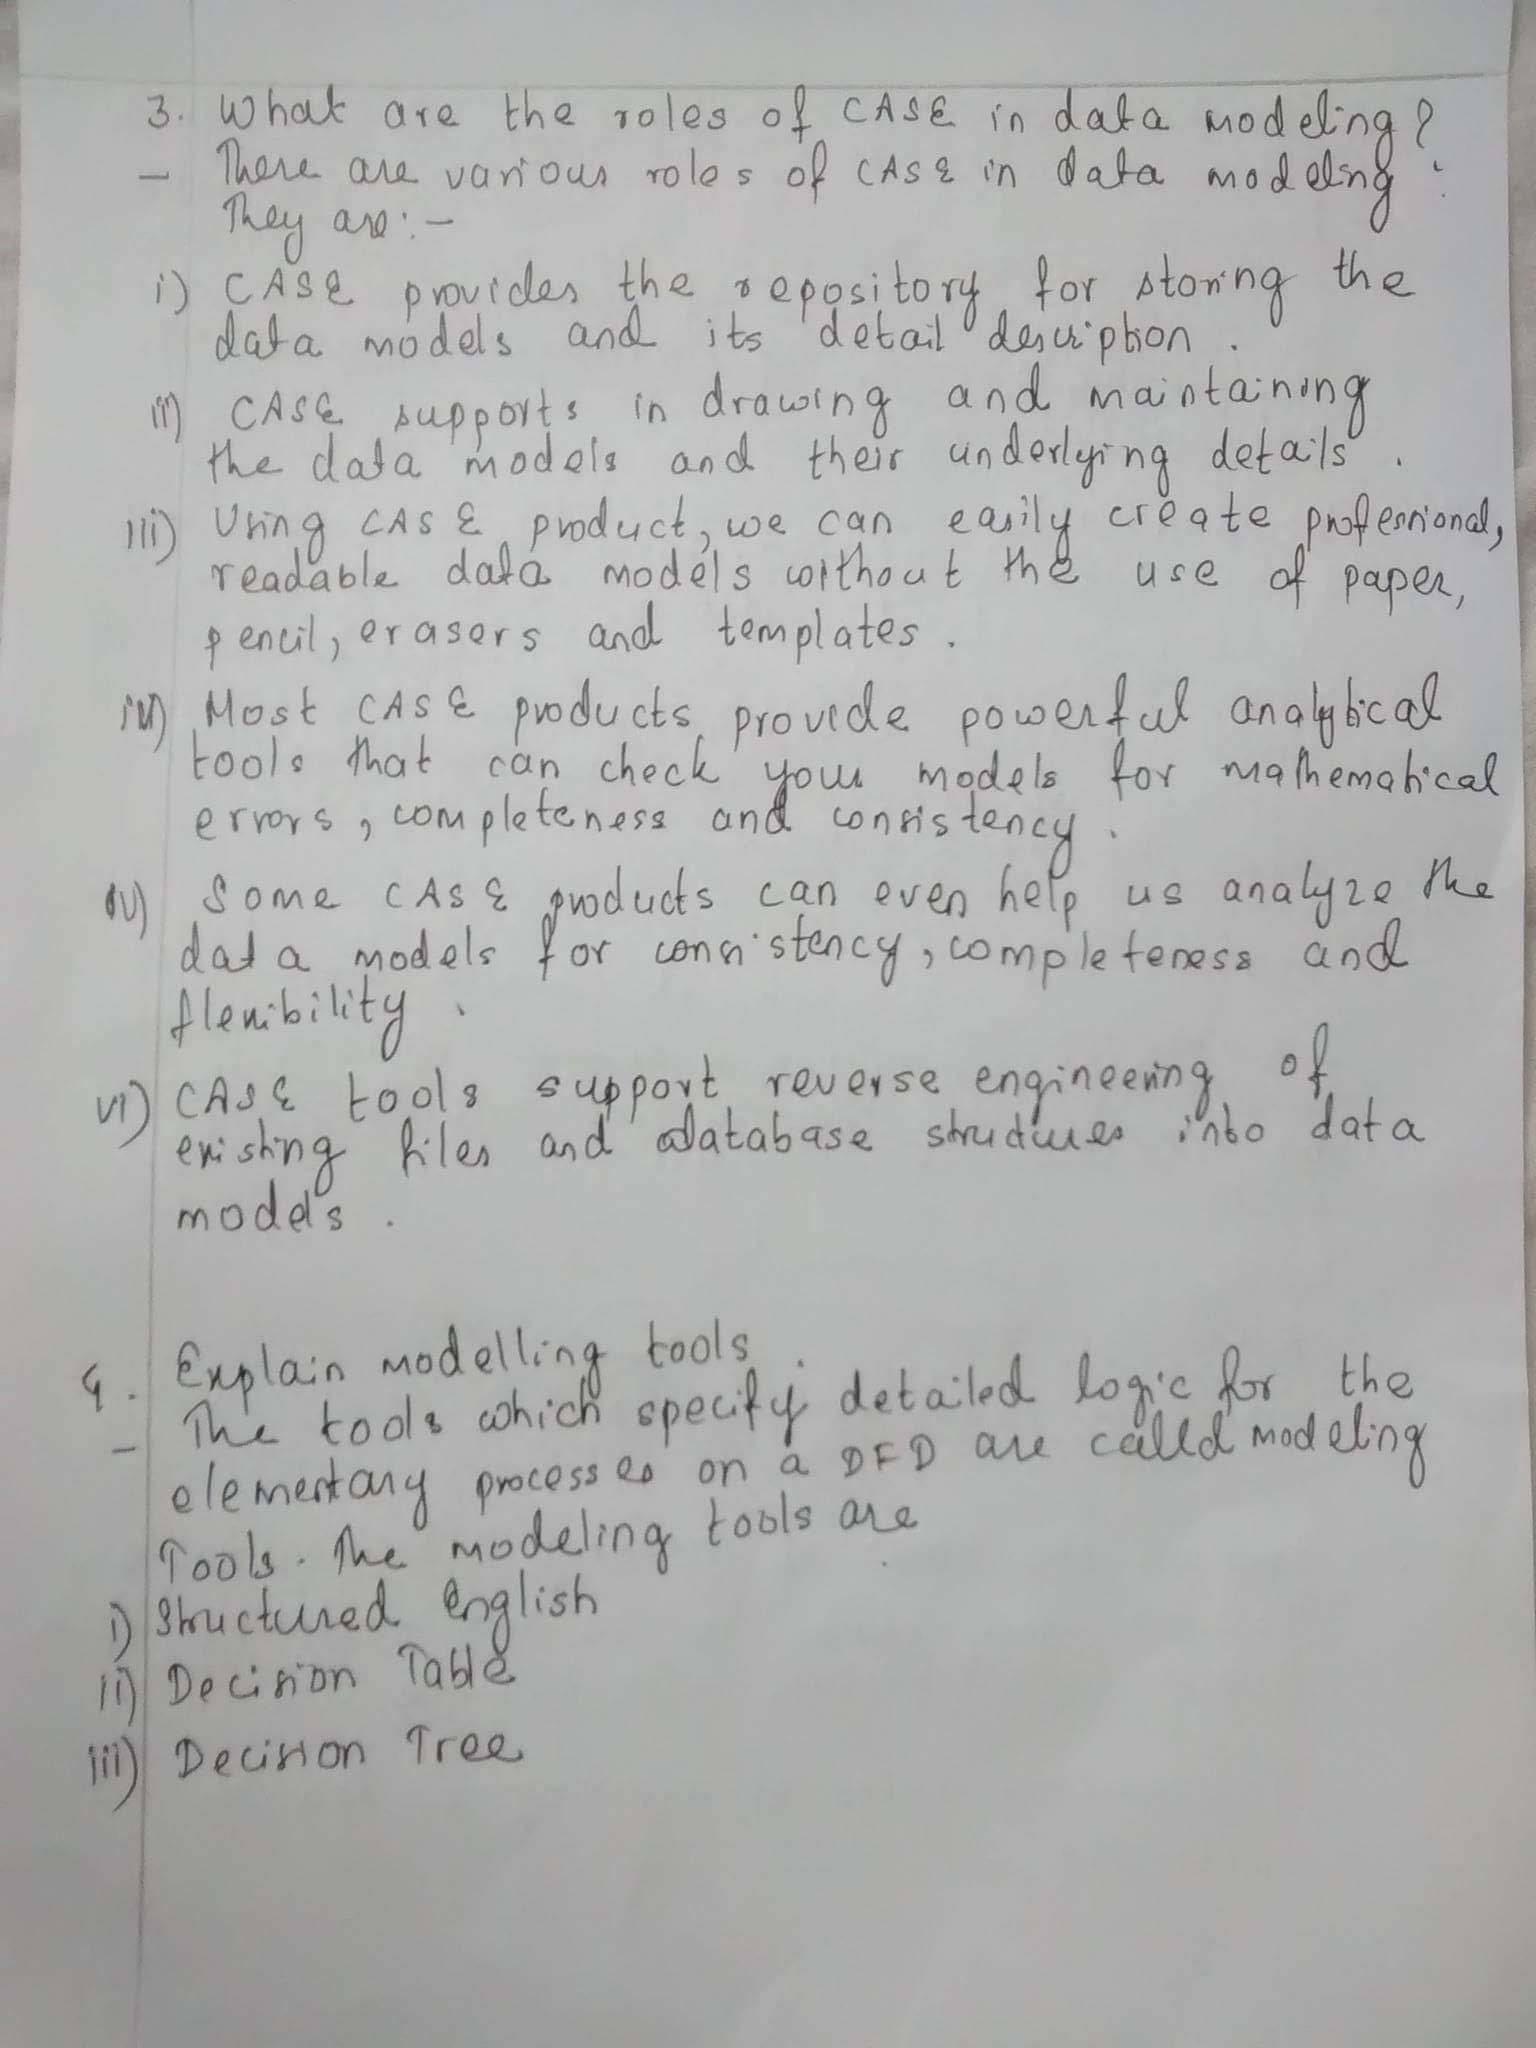 3. What are the roles of CASE in data modeling?
- There are various roles of CASE in data modeling.
They are:-
i) CASE provides the repository for storing the
data models and its detail description.
ii) CASE supports in drawing and maintaining
the data models and their underlying details.
iii) Using CASE product, we can easily create professional,
readable data models without the use of paper,
pencil, erasers and templates.
iv) Most CASE products provide powerful analytical
tools that can check your models for mathematical
errors, completeness and consistency.
v) Some CASE products can even help us analyze the
data models for consistency, completeness and
flexibility.
vi) CASE tools support reverse engineering of
existing files and database structures into data
models.
4. Explain modelling tools.
- The tools which specify detailed logic for the
elementary processes on a DFD are called modeling
Tools. The modeling tools are
i) Structured English
ii) Decision Table
iii) Decision Tree